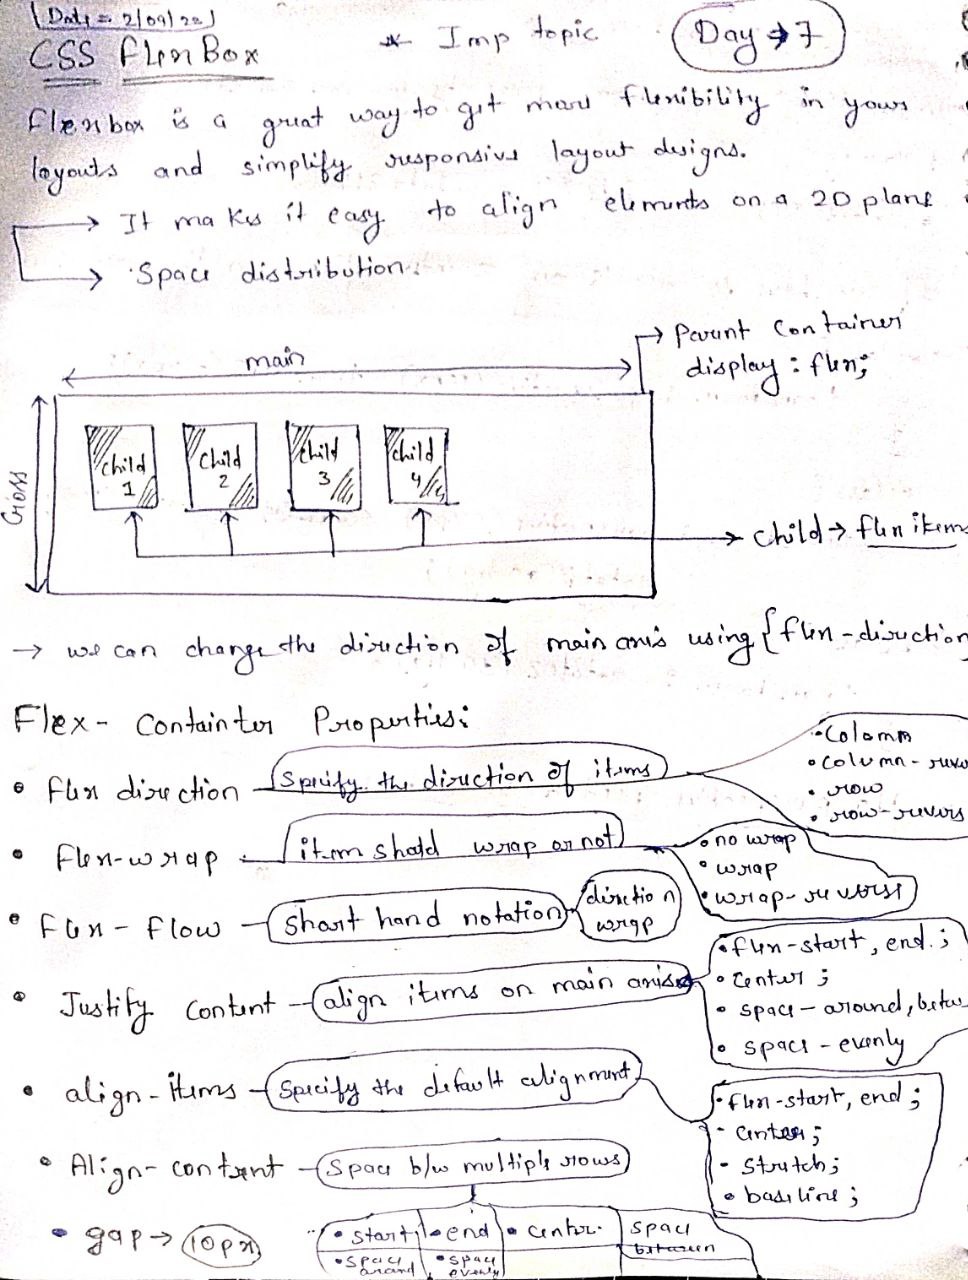 Date = 2/09/22
CSS FlexBox
* Imp topic
Day → 7
flexbox is a great way to get more flexibility in your
layouts and simplify responsive layout designs.
→ It makes it easy to align elements on a 2D plane
→ Space distribution.
main
→ Parent Container
display : flex;
Cross
child 1
child 2
child 3
child 4
→ child → flex items
→ we can change the direction of main axis using {flex-direction
Flex- Containter Properties:
• flex direction
Specify the direction of items
• Colomn
• column-reve
• row
• row-revers
• flex-wrap
item shold wrap or not
• no wrap
• wrap
• wrap-reverse
• flex-flow
short hand notation
direction
wrap
• Justify content
align items on main axis
• flex-start, end.;
• center ;
• space-around, betwe
• space-evenly
• align-items
Specify the default alignment
• flex-start, end ;
- center ;
- stretch;
• baseline ;
• Align-content
Space b/w multiple rows
• start
• end
• center.
space between
• space around
• space evenly
• gap → 10px